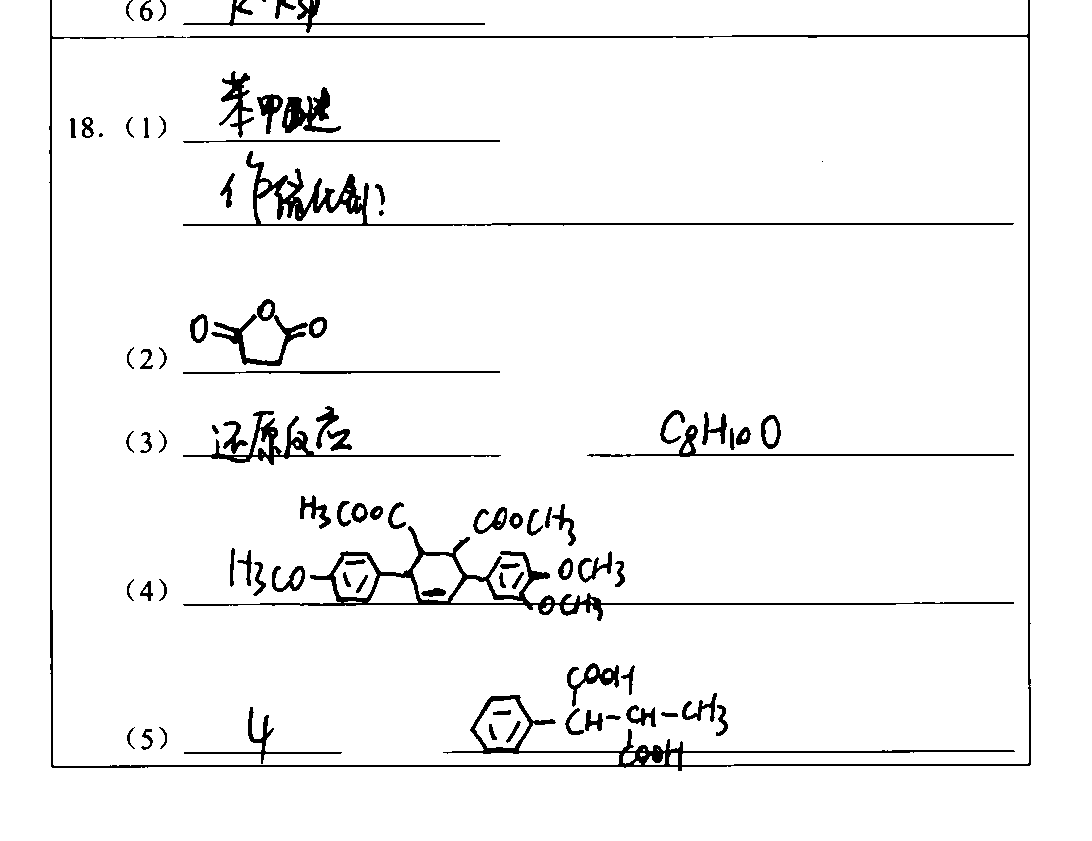 (6) K·Ksp
18. (1) 苯甲醛
作催化剂?
O O O
(2)
(3) 还原反应 C8H10O
H3COOC COOCH3
(4) H3CO OCH3
OCH3
COOH
(5) 4 CH-CH-CH3
COOH